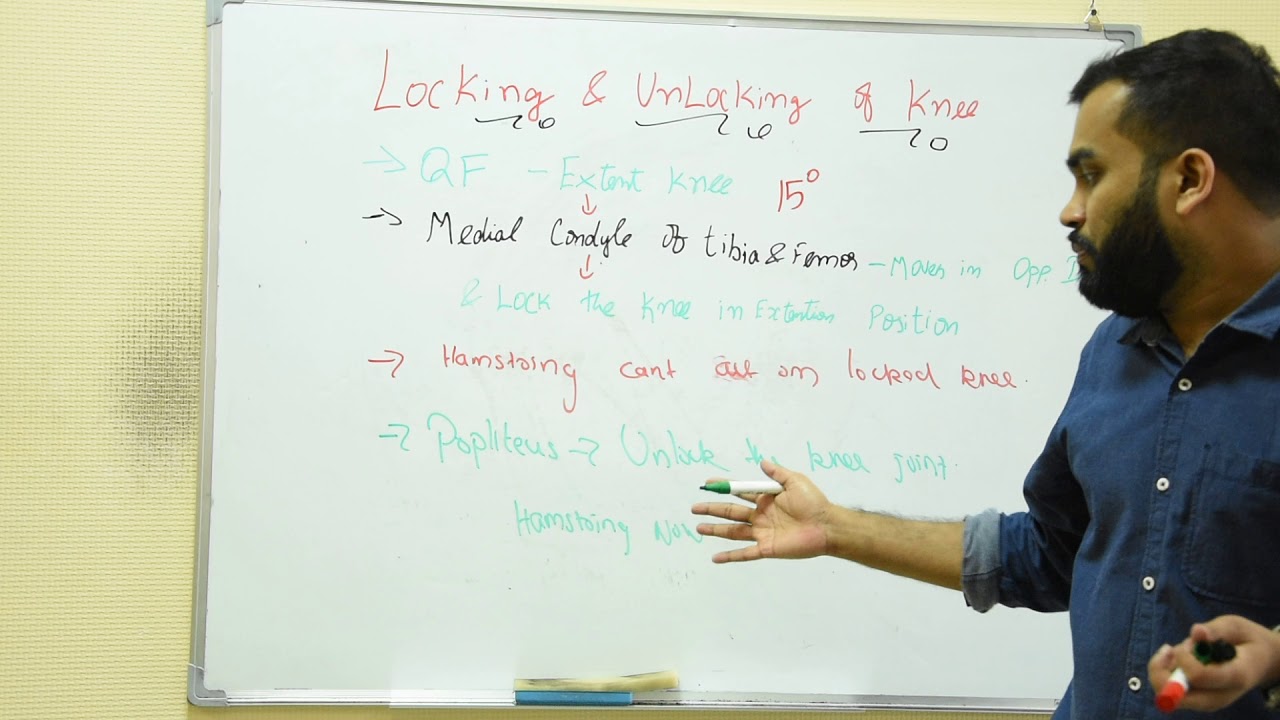 Locking & UnLocking of Knee
→ QF - Extent Knee 15°
→ Medial Condyle of tibia & Femor - Moves in Opp.
& Lock the Knee in Extention Position
→ Hamstring cant act on locked knee.
→ Popliteus → Unlock the knee joint.
Hamstring Now